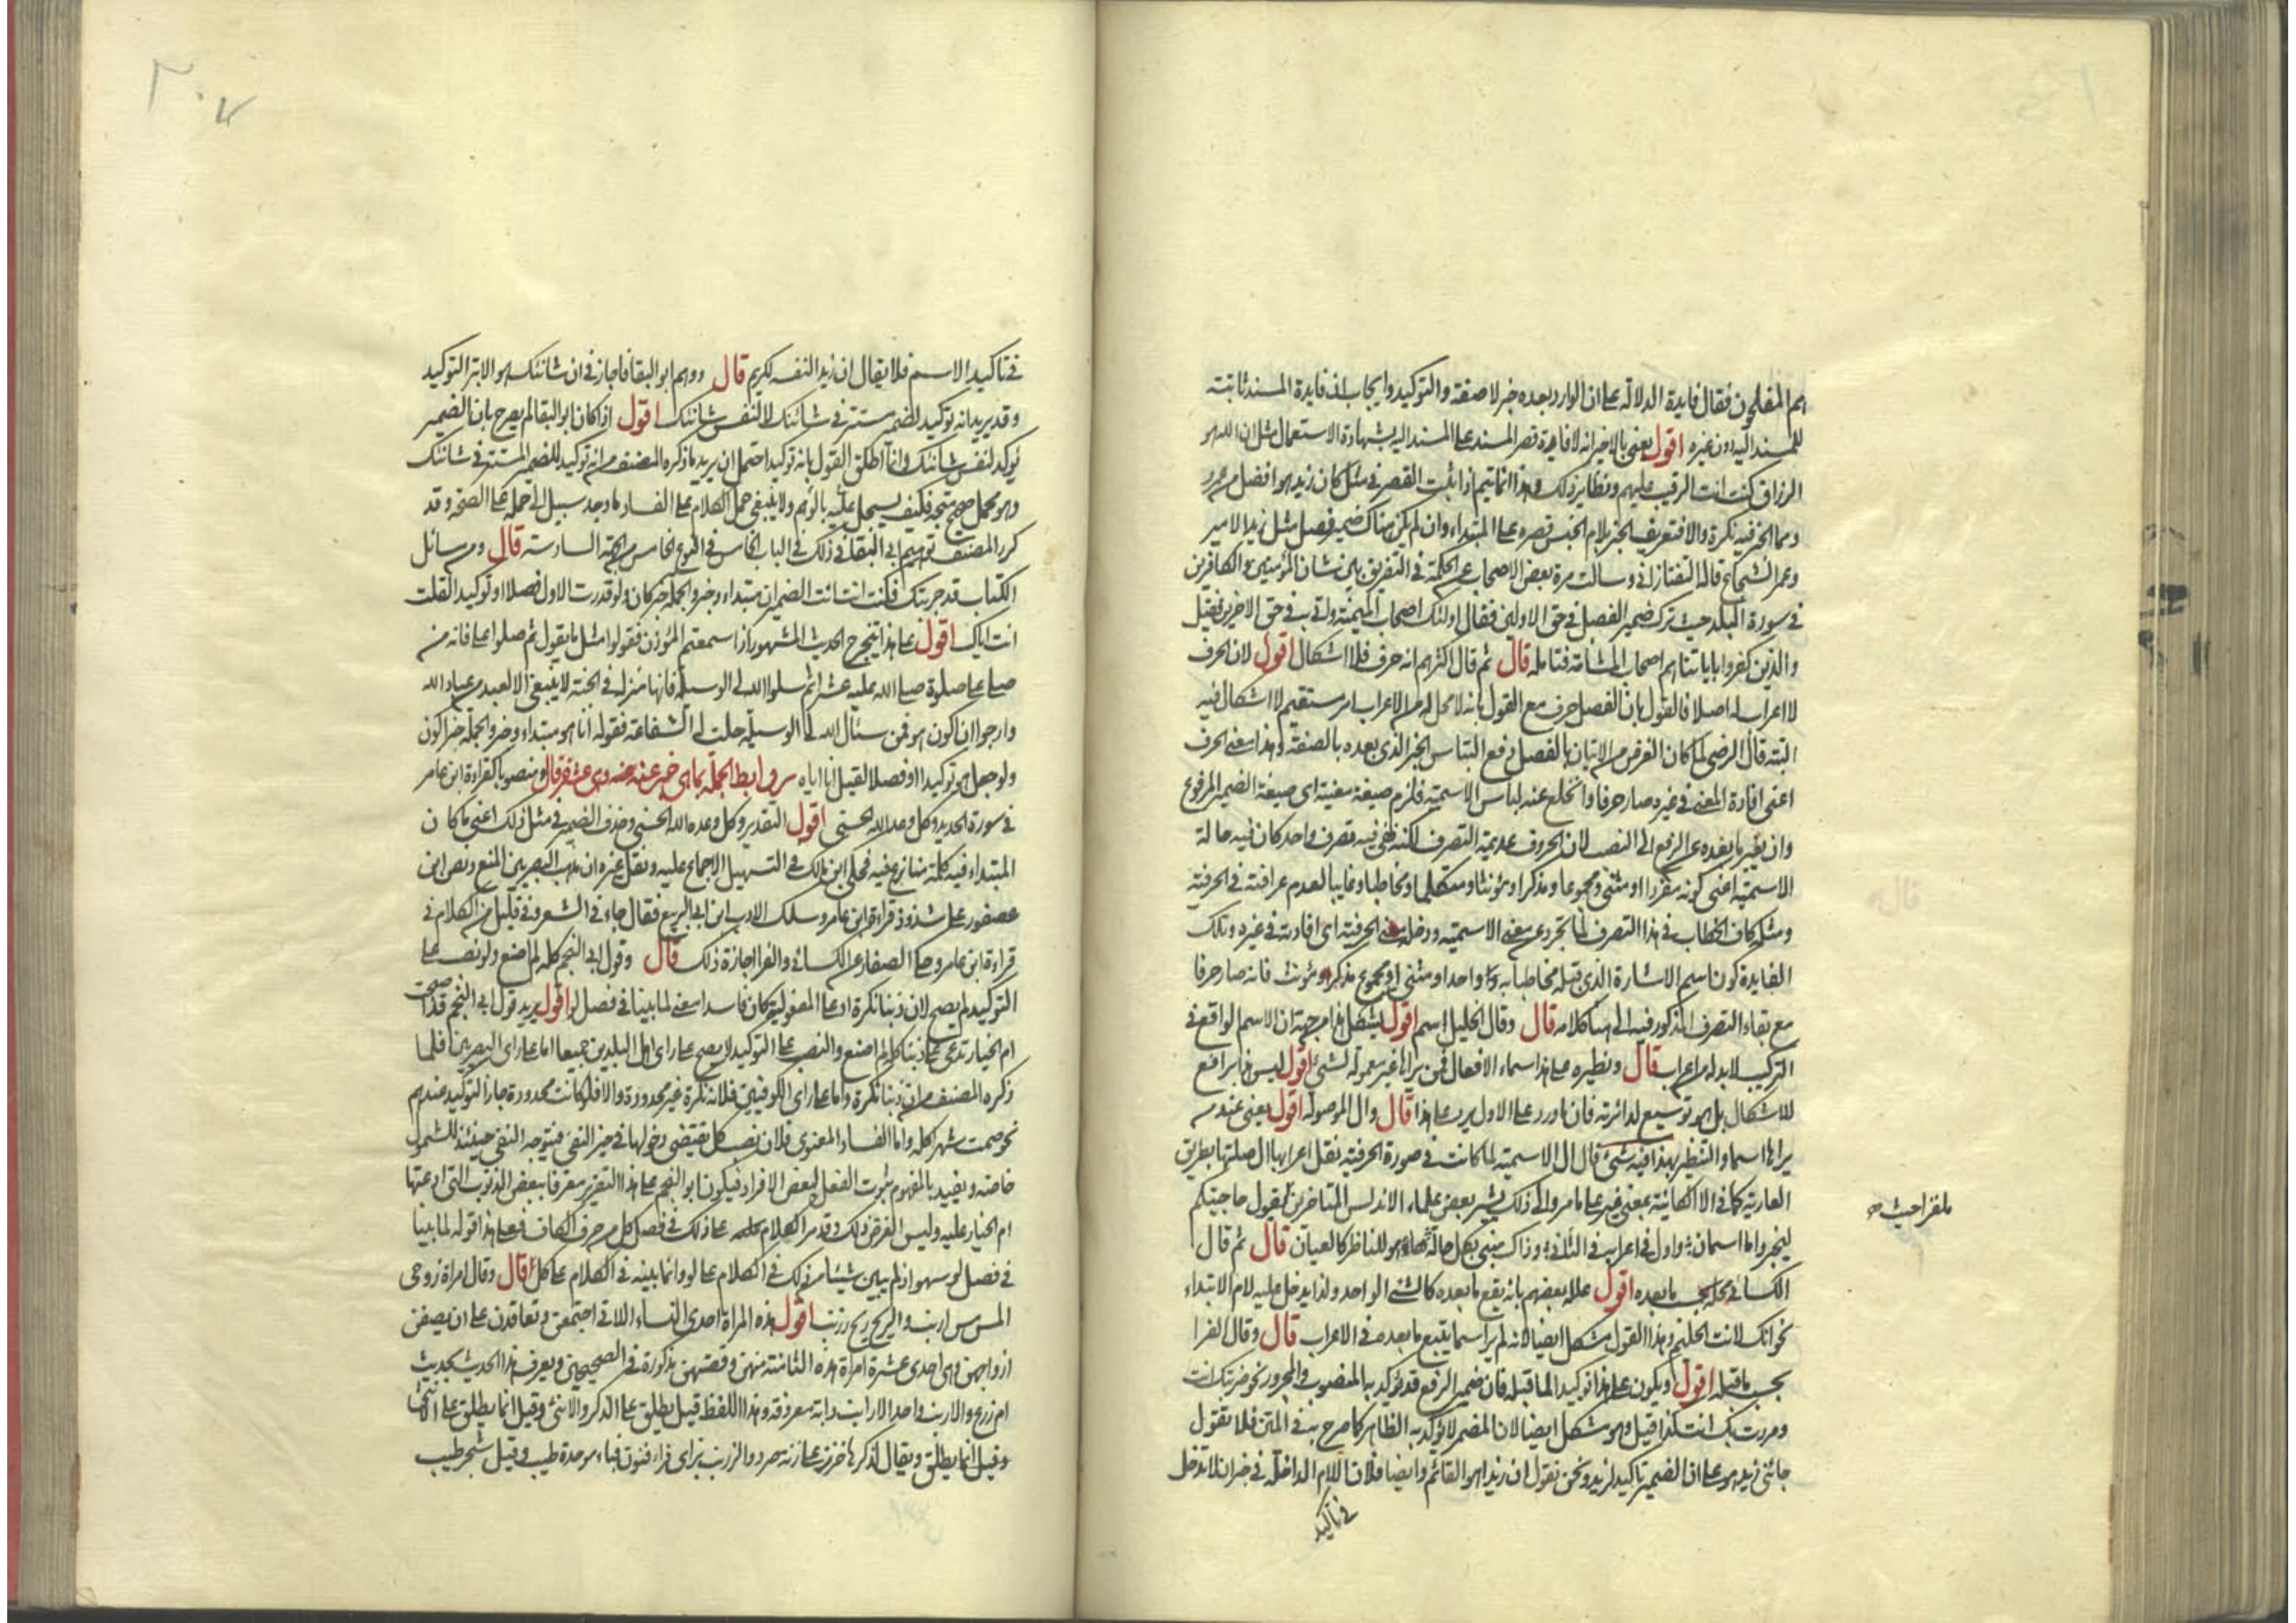 هم المفلحون فقال فايدة الدلالة على ان الوارد بعده خبر لا صفة والتوكيد وايجاب ان فايدة المسند ثابتة
للمسند اليه دون غيره اقول يعنى بالاخير انه لافادة قصر المسند على المسند اليه بشهادة الاستعمال مثل ان الله هو
الرزاق كنت انت الرقيب عليهم ونظاير ذلك وهذا انما يتم اذا ثبت القصر فى مثل كان زيد هو افضل من عمرو
ومما الخبر فيه نكرة والا فتعريف الخبر بلام الجنس قصره على المبتداء وان لم يكن هناك ضمير فصل مثل زيد الامير
وعمر الشجاع قاله التفتازانى وسالت مرة بعض الاصحاب عن الحكمة فى التفريق بين شان المؤمنين والكافرين
فى سورة البلد حيث ترك ضمير الفصل فى حق الاولين فقال اولئك اصحاب الميمنة واتى به فى حق الاخرين فقيل
والذين كفروا باياتنا هم اصحاب المشأمة فتامله قال ثم قال اكثرهم انه حرف فلا اشكال اقول لان الحرف
لا اعراب له اصلا فالقول بان الفصل حرف مع القول بانه لا محل له من الاعراب امر مستقيم لا اشكال فيه
البتة قال الرضى لما كان الغرض من الاتيان بالفصل دفع التباس الخبر الذى بعده بالصفة وهذا معنى الحرف
اعنى افادة المعنى فى غيره صار حرفا وانخلع عنه لباس الاسمية فلزم صيغة معينة اى صيغة الضمير المرفوع
وان تغير ما بعده عن الرفع الى النصب لان الحروف عديمة التصرف لكنه بقى فيه تصرف واحد كان فيه حالة
الاسمية اعنى كونه مفردا او مثنى ومجموعا ومذكرا ومؤنثا ومتكلما ومخاطبا وغايبا لعدم عراقته فى الحرفية
ومثله كاف الخطاب فى هذا التصرف لما تجرد عن معنى الاسمية ودخله معنى الحرفية اى افادته فى غيره وتلك
الفايدة كون اسم الاشارة الذى قبله مخاطبا به واحدا او مثنى او مجموع مذكر ومؤنث فانه صار حرفا
مع بقاء التصرف المذكور فيه الى هنا كلامه قال وقال الخليل اسم اقول يشكل هذا من جهة ان الاسم الواقع فى
التركيب لا بد له من اعراب قال ونظيره على هذا اسماء الافعال فمن يراها غير معمولة لشئ اقول ليس هذا برافع
للاشكال بل هو توسيع لدائرته فان ما ورد على الاول يرد على هذا قال وال الموصولة اقول يعنى عند من
يراها اسما والتنظير بهذا فيه شئ فان ال الاسمية لما كانت فى صورة الحرفية نقل اعرابها الى صلتها بطريق
العارية كما فى الا الكائنة بمعنى غير على ما مر والى ذلك يشير بعض علماء الاندلس المتاخرين بقول حاجيتكم
ملغزا حيث
لتخبروا ما اسمان واول فى اعرابه فى الثانى وذاك مبنى بكل حالة هو للناظر كالعيان قال ثم قال
الكسائى محله بحسب ما بعده اقول علله بعضهم بانه يقع ما بعده كالشئ الواحد ولذا يدخل عليه لام الابتداء
نحو انك لانت الحليم وهذا القول مشكل ايضا لانه لم نر اسما يتبع ما بعده فى الاعراب قال وقال الفرا
بحسب ما قبله اقول ويكون على هذا توكيدا لما قبله فان ضمير الرفع قد يؤكد به المنصوب والمجرور نحو ضربتك انت
ومررت بك انت كذا قيل وهو مشكل ايضا لان المضمر لا يؤكد به الظاهر كما صرح به فى المتن فلا تقول
جائنى زيد هو على ان الضمير تاكيد لزيد ونحن نقول ان زيدا هو القائم وايضا فلان اللام الداخلة فى خبر ان لا تدخل
فى تاكيد
٣٠٧
فى تاكيد الاسم فلا يقال ان زيدا لنفسه كريم قال ووهم ابو البقا فاجاز فى ان شانئك هو الابتر التوكيد
وقد يريد انه توكيد لضمير مستتر فى شانئك لا لنفس شانئك اقول اذا كان ابو البقا لم يصرح بان الضمير
توكيد لنفس شانئك وانما اطلق القول بانه توكيد احتمل ان يريد ما ذكره المصنف من انه توكيد للضمير المستتر فى شانئك
وهو محمل صحيح متجه فكيف يسجل عليه بالوهم ولا ينبغى حمل الكلام على الفساد ما وجد سبيل الى حمله على الصحة وقد
كرر المصنف توهيم ابى البقا فى ذلك فى الباب الخامس فى النوع الخامس من الجهة السادسة قال ومن مسائل
الكتاب قد جربتك فكنت انت انت الضميران مبتداء وخبر والجملة خبر كان ولو قدرت الاول فصلا او توكيدا لقلت
انت اياك اقول على هذا يتخرج الحديث المشهور اذا سمعتم المؤذن فقولوا مثل ما يقول ثم صلوا على فانه من
صلى على صلوة صلى الله عليه عشرا ثم سلوا الله لى الوسيلة فانها منزلة فى الجنة لا ينبغى الا لعبد من عباد الله
وارجوا ان اكون انا هو فمن سئال الله لى الوسيلة حلت له الشفاعة فقوله انا هو مبتداء وخبر والجملة خبر اكون
ولو جعل هو توكيدا او فصلا لقيل انا اياه روابط الجملة بما هى خبر عنه وهى عشرة قال ومنصوبا كقراءة ابن عامر
فى سورة الحديد وكل وعد الله الحسنى اقول التقدير وكل وعده الله الحسنى وحذف الضمير فى مثل ذلك اعنى ما كان
المبتداء فيه كلمة متنازع فيه فحكى ابن مالك فى التسهيل الاجماع عليه ونقل غيره ان مذهب البصريين المنع ونص ابن
عصفور على شذوذ قراءة ابن عامر وسلك الادب ابن ابى الربيع فقال جاء فى الشعر وفى قليل من الكلام فى
قراءة ابن عامر وحكى الصفار عن الكسائى والفرا اجازة ذلك قال وقول ابى النجم كله لم اصنع ولو نصب على
التوكيد لم يصح لان ذنبا نكرة او على المفعولية كان فاسدا معنى لما بينا فى فصل لو اقول يريد قول ابى النجم قد اصبحت
ام الخيار تدعى على ذنبا كله لم اصنع والنصب على التوكيد لا يصح على راى اهل البلدين جميعا اما على راى البصريين فلما
ذكره المصنف من ان ذنبا نكرة واما على راى الكوفيين فلانه نكرة غير محدودة والا فلو كانت محدودة جاز التوكيد عندهم
نحو صمت شهرا كله واما الفساد المعنوى فلان نصب كل يقتضى دخولها فى حيز النفى فيتوجه النفى حينئذ للشمول
خاصة ويفيد بالمفهوم ثبوت الفعل لبعض الافراد فيكون ابو النجم على هذا التقرير معترفا ببعض الذنوب التى ادعتها
ام الخيار عليه وليس الغرض ذلك وقد مر الكلام على ذلك فى فصل كل من حرف الكاف فعلى هذا قوله لما بينا
فى فصل لو سهو اذ لم يبين شيئا من ذلك فى الكلام على لو وانما بينه فى الكلام على كل قال وقال امراة زوجى
المس مس ارنب والريح ريح زرنب اقول هذه المراة احدى النساء اللاتى اجتمعن وتعاقدن على ان يصفن
ازواجهن وهى احدى عشرة امراة هذه الثامنة منهن وقصتهن مذكورة فى الصحيحين ويعرف هذا الحديث بحديث
ام زرع والارنب واحد الارانب دابة معروفة وهذا اللفظ قيل يطلق على الذكر والانثى وقيل انما يطلق على الانثى
وقيل انما يطلق ويقال لذكرها خزز على زنة صرد والزرنب بزاى فراء فنون فباء موحدة طيب وقيل شجر طيب